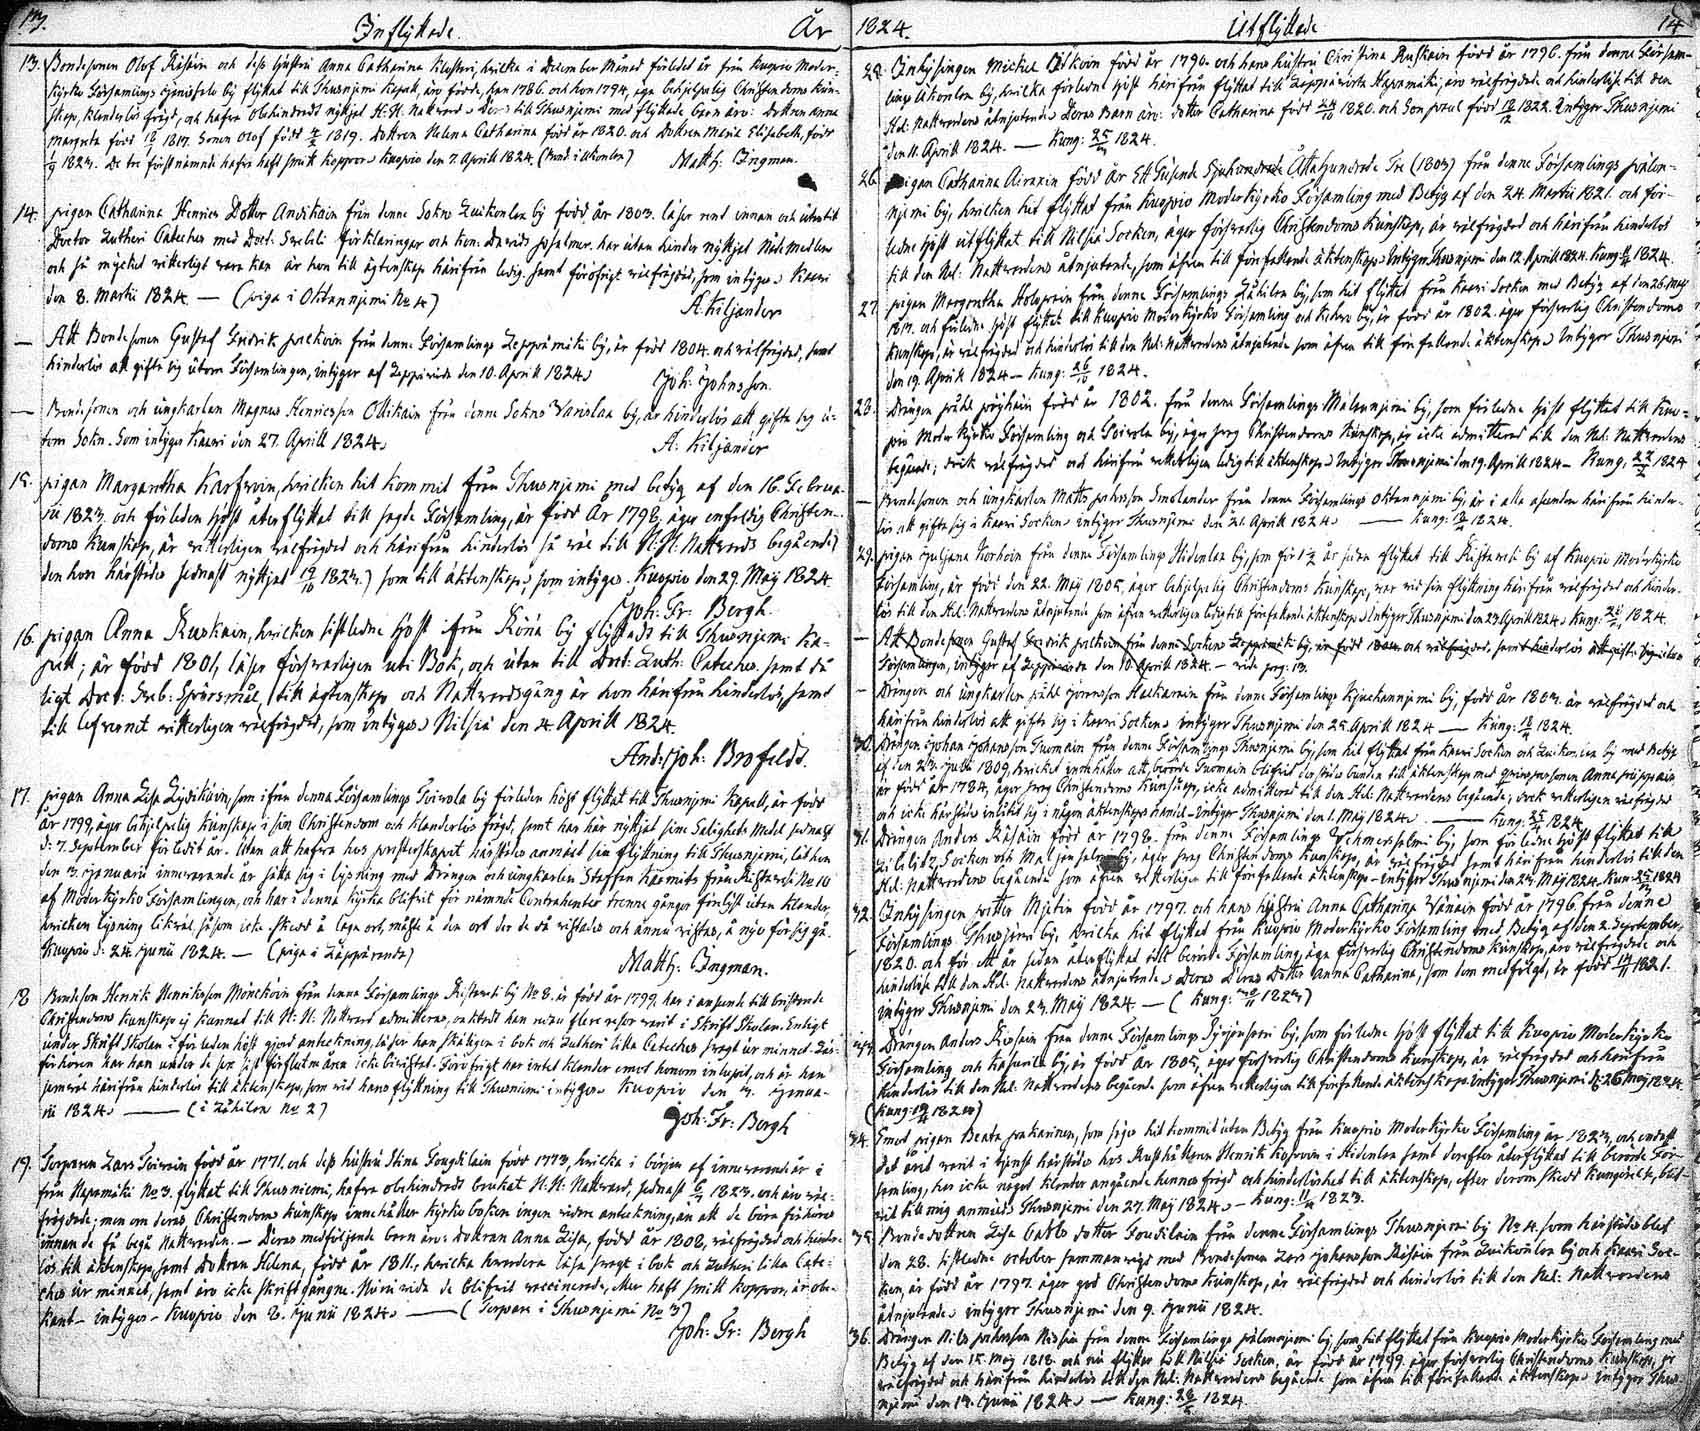 13. Inflyttade. År
13. Bondesonen Olof Räsäin och dess hustru Anna Catharina hvilka i December Månad förledet år från Kuopio Moder-
kyrko Församlings by flyttat till Thusnjemi Kapell, äro födde, han 1786 och hon 1794, äga behjelpelig Christendoms kun-
skap, klanderlös frägd, och hafva obehindradt nyttjat H. H. Nattvard. Deras till Thusnjemi med flyttade barn äro: dottren Anna
Margreta född 1817. Sonen Olof född 1819. Dottren Helena Catharina född år 1820. och Dottren Maria Elisabeth, född
1823. De tre förstnämnde hafva haft smitt koppor. Kuopio den 7. Aprill 1824. Matth: Ingman.
14. pigan Catharina Henrics Dotter Andikain från denne Sokns Luikonlax by född år 1803. läser rent innan och utantill
Doctor Lutheri Cateches med Doct: Svebelii förklaringar och Kon. Davids psalmer. har utan hinder nyttjat Nådemedlen
och så mycket vitterligt vara kan är hon till ägtenskap härifrån ledig, samt föröfrigt välfrägdad, som intygas Kaavi
den 8. Martii 1824. — (piga i Oktannjemi No 4) A. Kiljander
— Att Bondesonen Gustaf Fredrik från denne Församlings Leppämäki by, är född 1804. och välfrägdad, samt
hinderlös att gifta sig utom Församlingen, intyger af Leppävirda den 10. Aprill 1824. Joh: Johnsson.
— Bondesonen och ungkarlen Magnus Henricsson Ollikain från denne Sokns Varislax by, är hinderlös att gifta sig u-
tom Sokn. Som intygas Kaavi den 27. Aprill 1824. A. Kiljander
15. pigan Margaretha Karhvin, hvilken hit kommit från Thusnjemi med betyg af den 16. Februa-
rii 1823. och förleden höst återflyttat till sagde Församling, är född År 1798, äger enfaldig Christen-
doms kunskap, är vitterligen välfrägdad och härifrån hinderlös så väl till H. H: Nattvards begående
den hon härstädes sednast nyttjat 1823.) som till äktenskap, som intygas. Kuopio den 29. Maij 1824.
Joh: Fr: Bergh.
16. pigan Anna Ruskain, hvilken sistledne höst ifrån by flyttade till Thusnjemi Ka-
pell; är född 1801, läser försvarligen uti Bok, och utan till Doct: Luth: Catechis. samt då-
ligt Doct: Sveb: Spörsmål, till ägtenskap och Nattvardsgång är hon härifrån hinderlös, samt
till lefvernet vitterligen välfrägdad, som intygas Nilsiä den 4. Aprill 1824.
And: Joh: Brofeldt.
17. pigan Anna Lisa Lydikäin, som ifrån denna Församlings Toivola by förleden höst flyttat till Thusnjemi Kapell, är född
år 1799, äger behjelpelig kunskap i sin Christendom och klanderlös frägd, samt har här nyttjat sine Salighets Medel sednast
d: 7. September förledit år. Utan att hafva hos presterskapet härstädes anmält sin flyttning till Thusnjemi, lät hon
den 3. Januarii innevarande år sätta sig i lysning med Drengen och ungkarlen Staffan från Riistavesi No 10
af Moderkyrko Församlingen, och har i denna kyrka blifvit för nämnde Contrahenter trenne gånger förelyst utan klander,
hvilken lysning likväl, såsom icke skedd å laga ort, måste å den ort der de då vistades och ännu vistas, å nyo för sig gå.
Kuopio d: 24. Junii 1824. — (piga i Läppäranda) Matth: Ingman.
18 Bondeson Henrik Henriksson Mönckoin från denna Församlings Riistavesi by No 8. är född år 1799. har i anseende till bristande
Christendoms kunskap ej kunnat till H. H: Nattvard admitteras, oaktadt han redan flere resor varit i Skrift Skolan. Enligt
under Skrift Skolan i förleden höst gjord anteckning, läser han skäligen i bok och Lutheri lilla Cateches svagt ur minnet. Läs-
förhören har han under de sex sist förflutna åren icke bevistat. Föröfrigt har intet klander emot honom inlupit, och är han
jemväl härifrån hinderlös till äktenskap, som vid hans flyttning till Thusniemi intygas. Kuopio den 3. Janua-
rii 1824. — (i Lähilax No 2) Joh: Fr: Bergh
19. Torparen Lars Toivain född år 1771. och dess hustru Stina Tougilain född 1773, hvilka i början af innevarande år i
från Hapamäki No 3. flyttat till Thusniemi, hafva obehindradt brukat H. H: Nattvard, sednast 1823. och äro väl-
frägdade; men om deras Christendoms kunskap innehåller Kyrko boken ingen vidare anteckning, än att de böra förhöras
innan de få begå Nattvarden. — Deras medföljande barn äro: Dottran Anna Lisa, född år 1808, välfrägdad och hinder-
lös till äktenskap, samt Dottran Helena, född år 1811, hvilka hvardera läsa svagt i bok och Lutheri lilla Cate-
ches ur minnet, samt äro icke skriftgångne. Huruvida de blifvit vaccinerade, eller haft smitt koppor, är obe-
kant — intygas — Kuopio den 8. Junii 1824. — (Torpare i Thusnjemi No 3)
Joh: Fr: Bergh
1824. Utflyttade 14
25. Inhysingen Michel född år 1790. och hans hustru Christina Ruskain född år 1796. från denne Försam-
lings Ukonlax by, hvilka förledne höst härifrån flyttat till Leppävirta Hapamäki, äro välfrägdade och hinderlöse till den
Hel: Nattvardens åtnjutande. Deras Barn äro: dotter Catharina född 1820. och Son Paul född 1822. Intyger Thusnjemi
den 11. Aprill 1824. — Kung: 1824.
26. pigan Catharina Airaxin född år Ett Tusende Sjuhundrade Åttahundrade Tre (1803) från denne Församlings pålon-
njemi by, hvilken hit flyttat från Kuopio Moderkyrko Församling med Betyg af den 24. Martii 1821. och för-
ledne höst utflyttat till Nilsiä Socken, äger försvarlig Christendoms kunskap, är välfrägdad och härifrån hinderlös
till den Hel: Nattvardens åtnjutande, som äfven till förefallande äktenskap. Intyger Thusnjemi den 12. Aprill 1824. Kung: 1824.
27. pigan Margaretha Holopain från denne Församlings Lähilax by, som hit flyttat från Kaavi Socken med Betyg af den 26. Maij
1817. och förledne höst flyttat till Kuopio Moderkyrko Församling och by, är född år 1802. äger försvarlig Christendoms
kunskap, är välfrägdad och hinderlös till den Hel: Nattvardens åtnjutande som äfven till förefallande äktenskap. Intyger Thusnjemi
den 19. Aprill 1824 — Kung: 1824.
28. Drängen påhl född år 1802. från denne Församlings Målusnjemi by, som förledne höst flyttat till Kuo-
pio Moderkyrko Församling och Toivola by, äger svag Christendoms kunskap, är icke admitterad till den Hel: Nattvardens
begående; dock välfrägdad och härifrån vetterligen ledig till äktenskap. Intyger Thusnjemi den 19. Aprill 1824 — Kung: 1824
— Bondesonen och ungkarlen Matts Smolander från denne Församlings Oktannjemi by, är i alla afseenden härifrån hinder-
lös att gifta sig i Kaavi Socken. Intyger Thusnjemi den 21. Aprill 1824. — Kung: 1824.
29. pigan Juliana Korhoin från denne Församlings Hidenlax by, som för 1½ år sedan flyttat till Riistavesi by af Kuopio Moderkyrko
Församling, är född den 22. Maij 1805, äger behjelpelig Christendoms kunskap, var vid sin flyttning härifrån välfrägdad och hinder-
lös till den Hel: Nattvardens åtnjutande som äfven vetterligen ledig till förefallande äktenskap. Intyger Thusnjemi den 23. Aprill 1824. Kung: 1824.
— Att Bondesonen Gustaf Fredrik från denne Sockens Leppämäki by, är född 1804. och välfrägdad, samt hinderlös att gifta sig utom
Församlingen, intyger af Leppävirda den 10. Aprill 1824. — vide pag: 13.
— Drängen och ungkarlen påhl från denne Församlings by, född år 1803. är välfrägdad och
härifrån hinderlös att gifta sig i Kaavi Socken. Intyger Thusnjemi den 25. Aprill 1824 — Kung: 1824.
30. Drängen Johan Johansson Tuomain från denne Församlings Thusnjemi by, som hit flyttat från Kaavi Socken och Luikonlax by med Betyg
af den 1809, hvilket innehåller att, berörde Tuomain blifvit derstädes bunden till äktenskap med qvinspersonen Anna
är född år 1784, äger svag Christendoms kunskap, icke admitterad till den Hel: Nattvardens begående; dock vetterligen välfrägdad
och icke härstädes inlåtit sig i någon äktenskaps handel. Intyger Thusnjemi den 1. Maij 1824. — Kung: 1824
31. Drängen Anders Räsäin född år 1798. från denne Församlings Vehmersalmi by, som förledne höst flyttat till
Libelitz Socken och by, äger svag Christendoms kunskap, är välfrägdad samt härifrån hinderlös till den
Hel: Nattvardens begående som äfven vetterligen till förefallande äktenskap — intyger Thusnjemi den 23. Maij 1824. Kung: 1824
32. Inhysingen petter Mjetin född år 1797. och hans hustru Anna Catharina Vänäin född år 1796. från denne
Församlings Thusnjemi by, hvilka hit flyttat från Kuopio Moderkyrko Församling med Betyg af den 2. September
1820. och för ett år sedan återflyttat till berörde Församling, äga försvarlig Christendoms kunskap, äro välfrägdade och
hinderlöse till den Hel: Nattvardens åtnjutande. Deras Dotter Anna Catharina, som dem medföljt, är född 1821.
intyger Thusnjemi den 23. Maij 1824 — (Kung: 1823)
33. Drängen Anders från denne Församlings by, som förledne höst flyttat till Kuopio Moderkyrko
Församling och by, är född år 1805, äger försvarlig Christendoms kunskap, är välfrägdad och härifrån
hinderlös till den Hel: Nattvardens begående som äfven vetterligen till förefallande äktenskap. intyger Thusnjemi d: 26 Maij 1824
(Kung: 1824)
34. Emot pigan Beata pakarinen, som säges hit kommit utan Betyg från Kuopio Moderkyrko Församling år 1823, och endast
det året varit i tjenst härstädes hos Rusthållaren Henrik i Hidenlax samt derefter återflyttat till berörde För-
samling, har icke något klander angående hennes frägd och hinderlöshet till äktenskap, efter derom skedd kungörelse, blif-
vit till mig anmält. Thusnjemi den 27. Maij 1824. — Kung: 1823.
35. Bondedottren Lisa dotter Toudilain från denne Församlings Thusnjemi by No 4. som härstädes blef
den 28. sistledne October sammanvigd med Bondesonen Lars Johansson Räsäin från Luikonlax by och Kaavi Soc-
ken, är född år 1797. äger god Christendoms kunskap, är välfrägdad och hinderlös till den Hel: Nattvardens
åtnjutande. intyger Thusnjemi den 9. Junii 1824.
36. Drängen Nils från denne Församlings pålonnjemi by, som hit flyttat från Kuopio Moderkyrko Församling med
Betyg af den 15. Maij 1818 och nu flyttar till Nilsiä Socken, är född år 1799. äger försvarlig Christendoms kunskap, är
välfrägdad och härifrån hinderlös till den Hel: Nattvardens begående som äfven till förefallande äktenskap. intyger Thus-
njemi den 13. Junii 1824. — Kung: 1824.